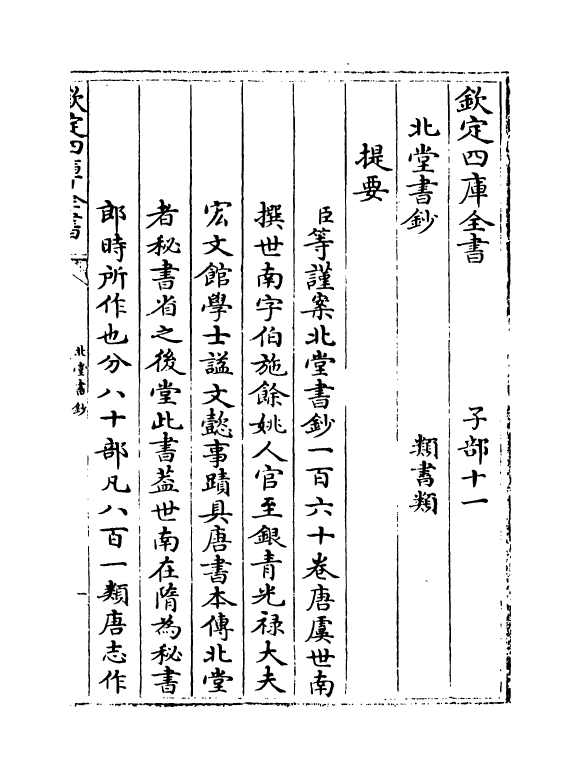 欽定四庫全書　子部十一
北堂書鈔　類書類
提要
臣等謹案北堂書鈔一百六十卷唐虞世南
撰世南字伯施餘姚人官至銀青光禄大夫
宏文館學士謚文懿事蹟具唐書本傳北堂
者秘書省之後堂此書葢世南在隋為秘書
郎時所作也分八十部凡八百一類唐志作
欽定四庫全書
北堂書鈔
一